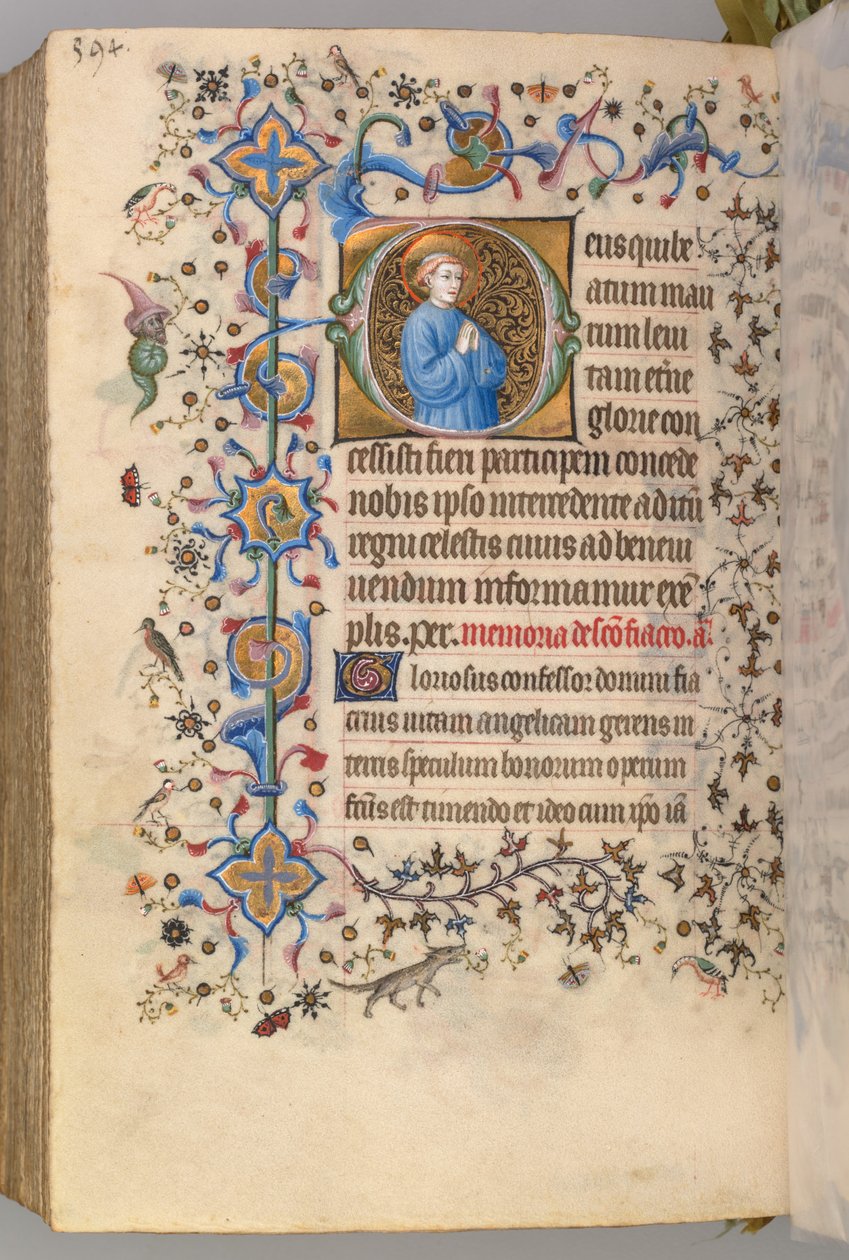 394.
Deus qui be
atum mau
rum leui
tam et̄ne
glorie con
cessisti fieri participem concede
nobis ipso intercedente aditū
regni celestis cuius ad bene ui
uendum informamur exē
plis. per. memoria de sc̄o fiacro. a͞.
Gloriosus confessor domini fia
crius uitam angelicam gerens in
terris speculum bonorum operum
fc̄us est timendo et ideo cum xp̄o iā